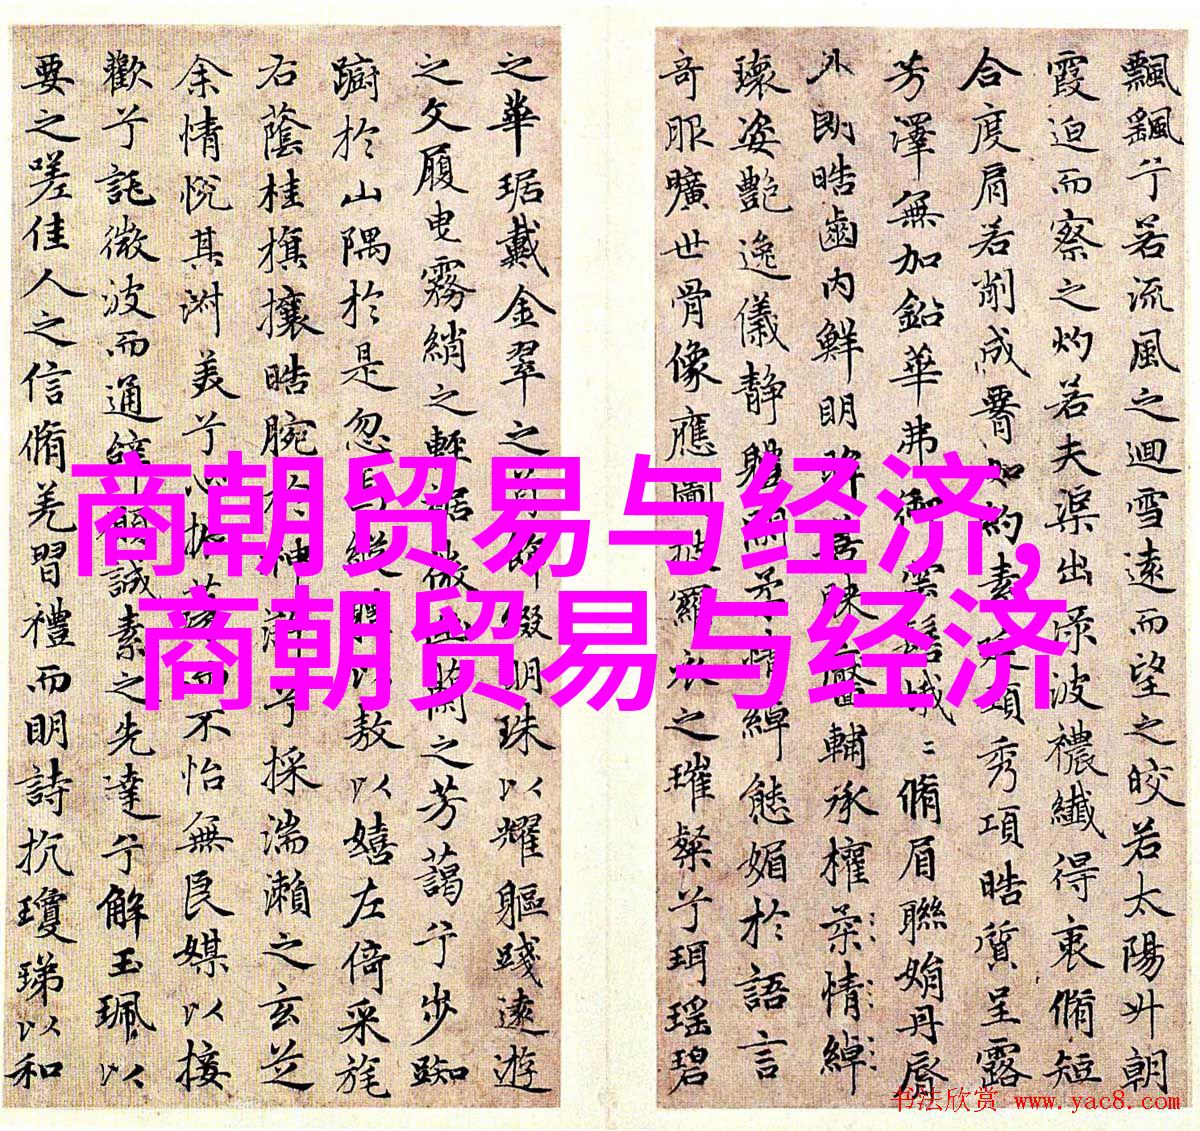 飄飖兮若流風之迴雪遠而望之皎若太陽升朝
霞迫而察之灼若夫渠出淥波襛纖得衷脩短
合度肩若削成腰如約素延頸秀項皓質呈露
芳澤無加鉛華弗御雲髻峨〻脩眉聯娟丹脣
外朗皓齒內鮮明眸善睞靨輔承權柔情綽
瓌姿艷逸儀靜體閑柔情綽態媚於語言
奇服曠世骨像應圖披羅衣之璀粲兮珥瑤碧
之華琚戴金翠之首飾綴明珠以耀軀踐遠遊
之文履曳霧綃之輕裾微幽蘭之芳藹兮步踟
躕於山隅於是忽焉縱體以敖以嬉左倚采旄
右蔭桂旗攘皓腕於神滸兮採湍瀨之玄芝
余情悅其淑美兮心振蕩而不怡無良媒以接
歡兮託微波而通辭願誠素之先達兮解玉珮以
要之嗟佳人之信脩羌習禮而明詩抗瓊珶以和
商朝贸易与经济,
商朝贸易与经济
书法欣赏 www.yac8.com